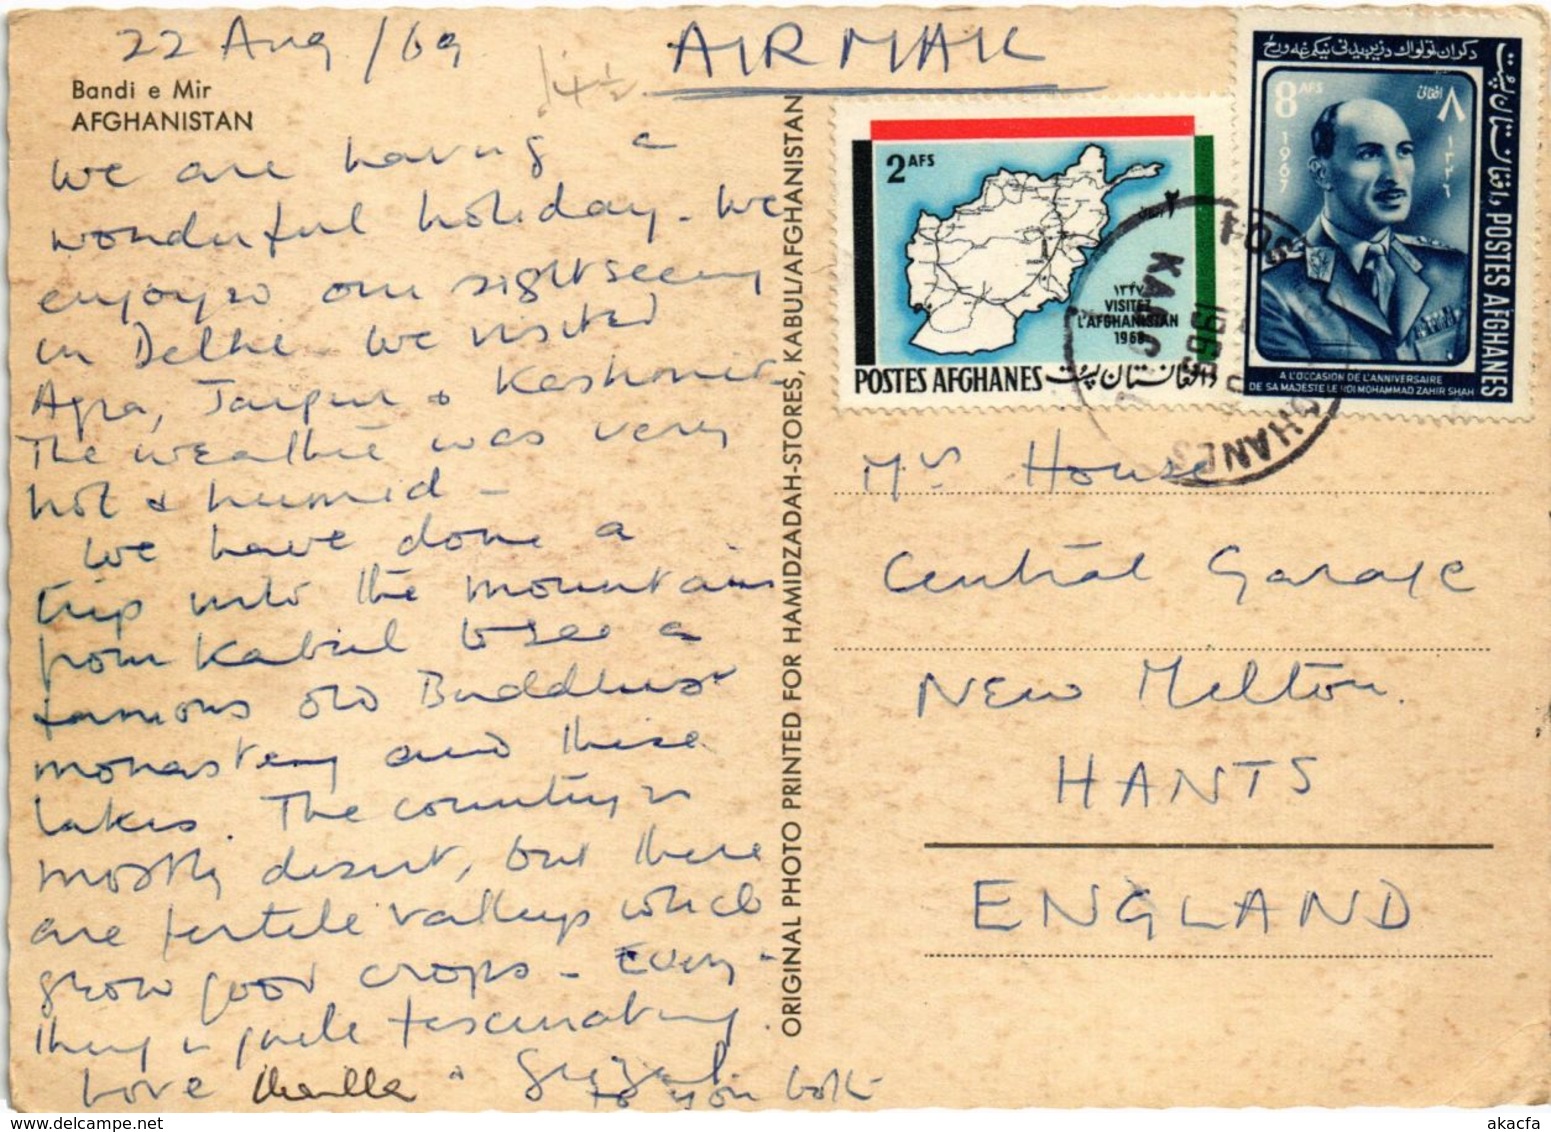 22 Aug /69
AIRMAIL
14½
Bandi e Mir
AFGHANISTAN
We are having a
wonderful holiday - We
enjoyed our sightseeing
in Delhi. We visited
Agra, Jaipur & Kashmir.
The weather was very
hot & humid -
We have done a
trip into the mountains
from Kabul to see a
famous old Buddhist
monastery and these
lakes. The country is
mostly desert, but there
are fertile valleys which
grow good crops - Every-
thing is quite fascinating.
Love
to you both
ORIGINAL PHOTO PRINTED FOR HAMIDZADAH-STORES, KABUL/AFGHANISTAN
2 AFS
۲
۱۳۴۷
VISITEZ
L'AFGHANISTAN
1968
POSTES AFGHANES
د افغانستان پوست
8 AFS
۸ افغانۍ
1967
۱۳۴۶
د افغانستان پوست, POSTES AFGHANES
A L'OCCASION DE L'ANNIVERSAIRE
DE SA MAJESTE LE ROI MOHAMMAD ZAHIR SHAH
1969
Mrs House
Central Garage
New Milton.
HANTS
ENGLAND
akacfa
www.delcampe.net